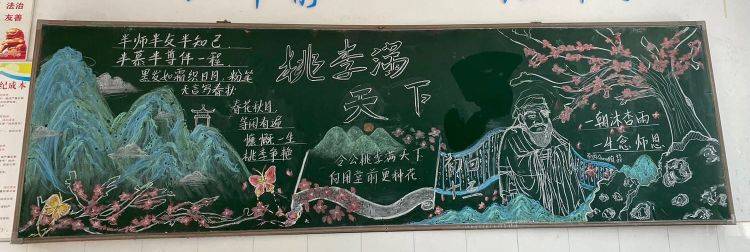 法治
友善
半师半友半知己
半慕半尊伴一程
黑发如霜织日月,粉笔
无言写春秋
春花秋月
等闲看遍
慷慨一生
桃李争艳
桃李满
天下
令公桃李满天下
何用堂前更种花
初
一朝沐杏雨
一生念师恩